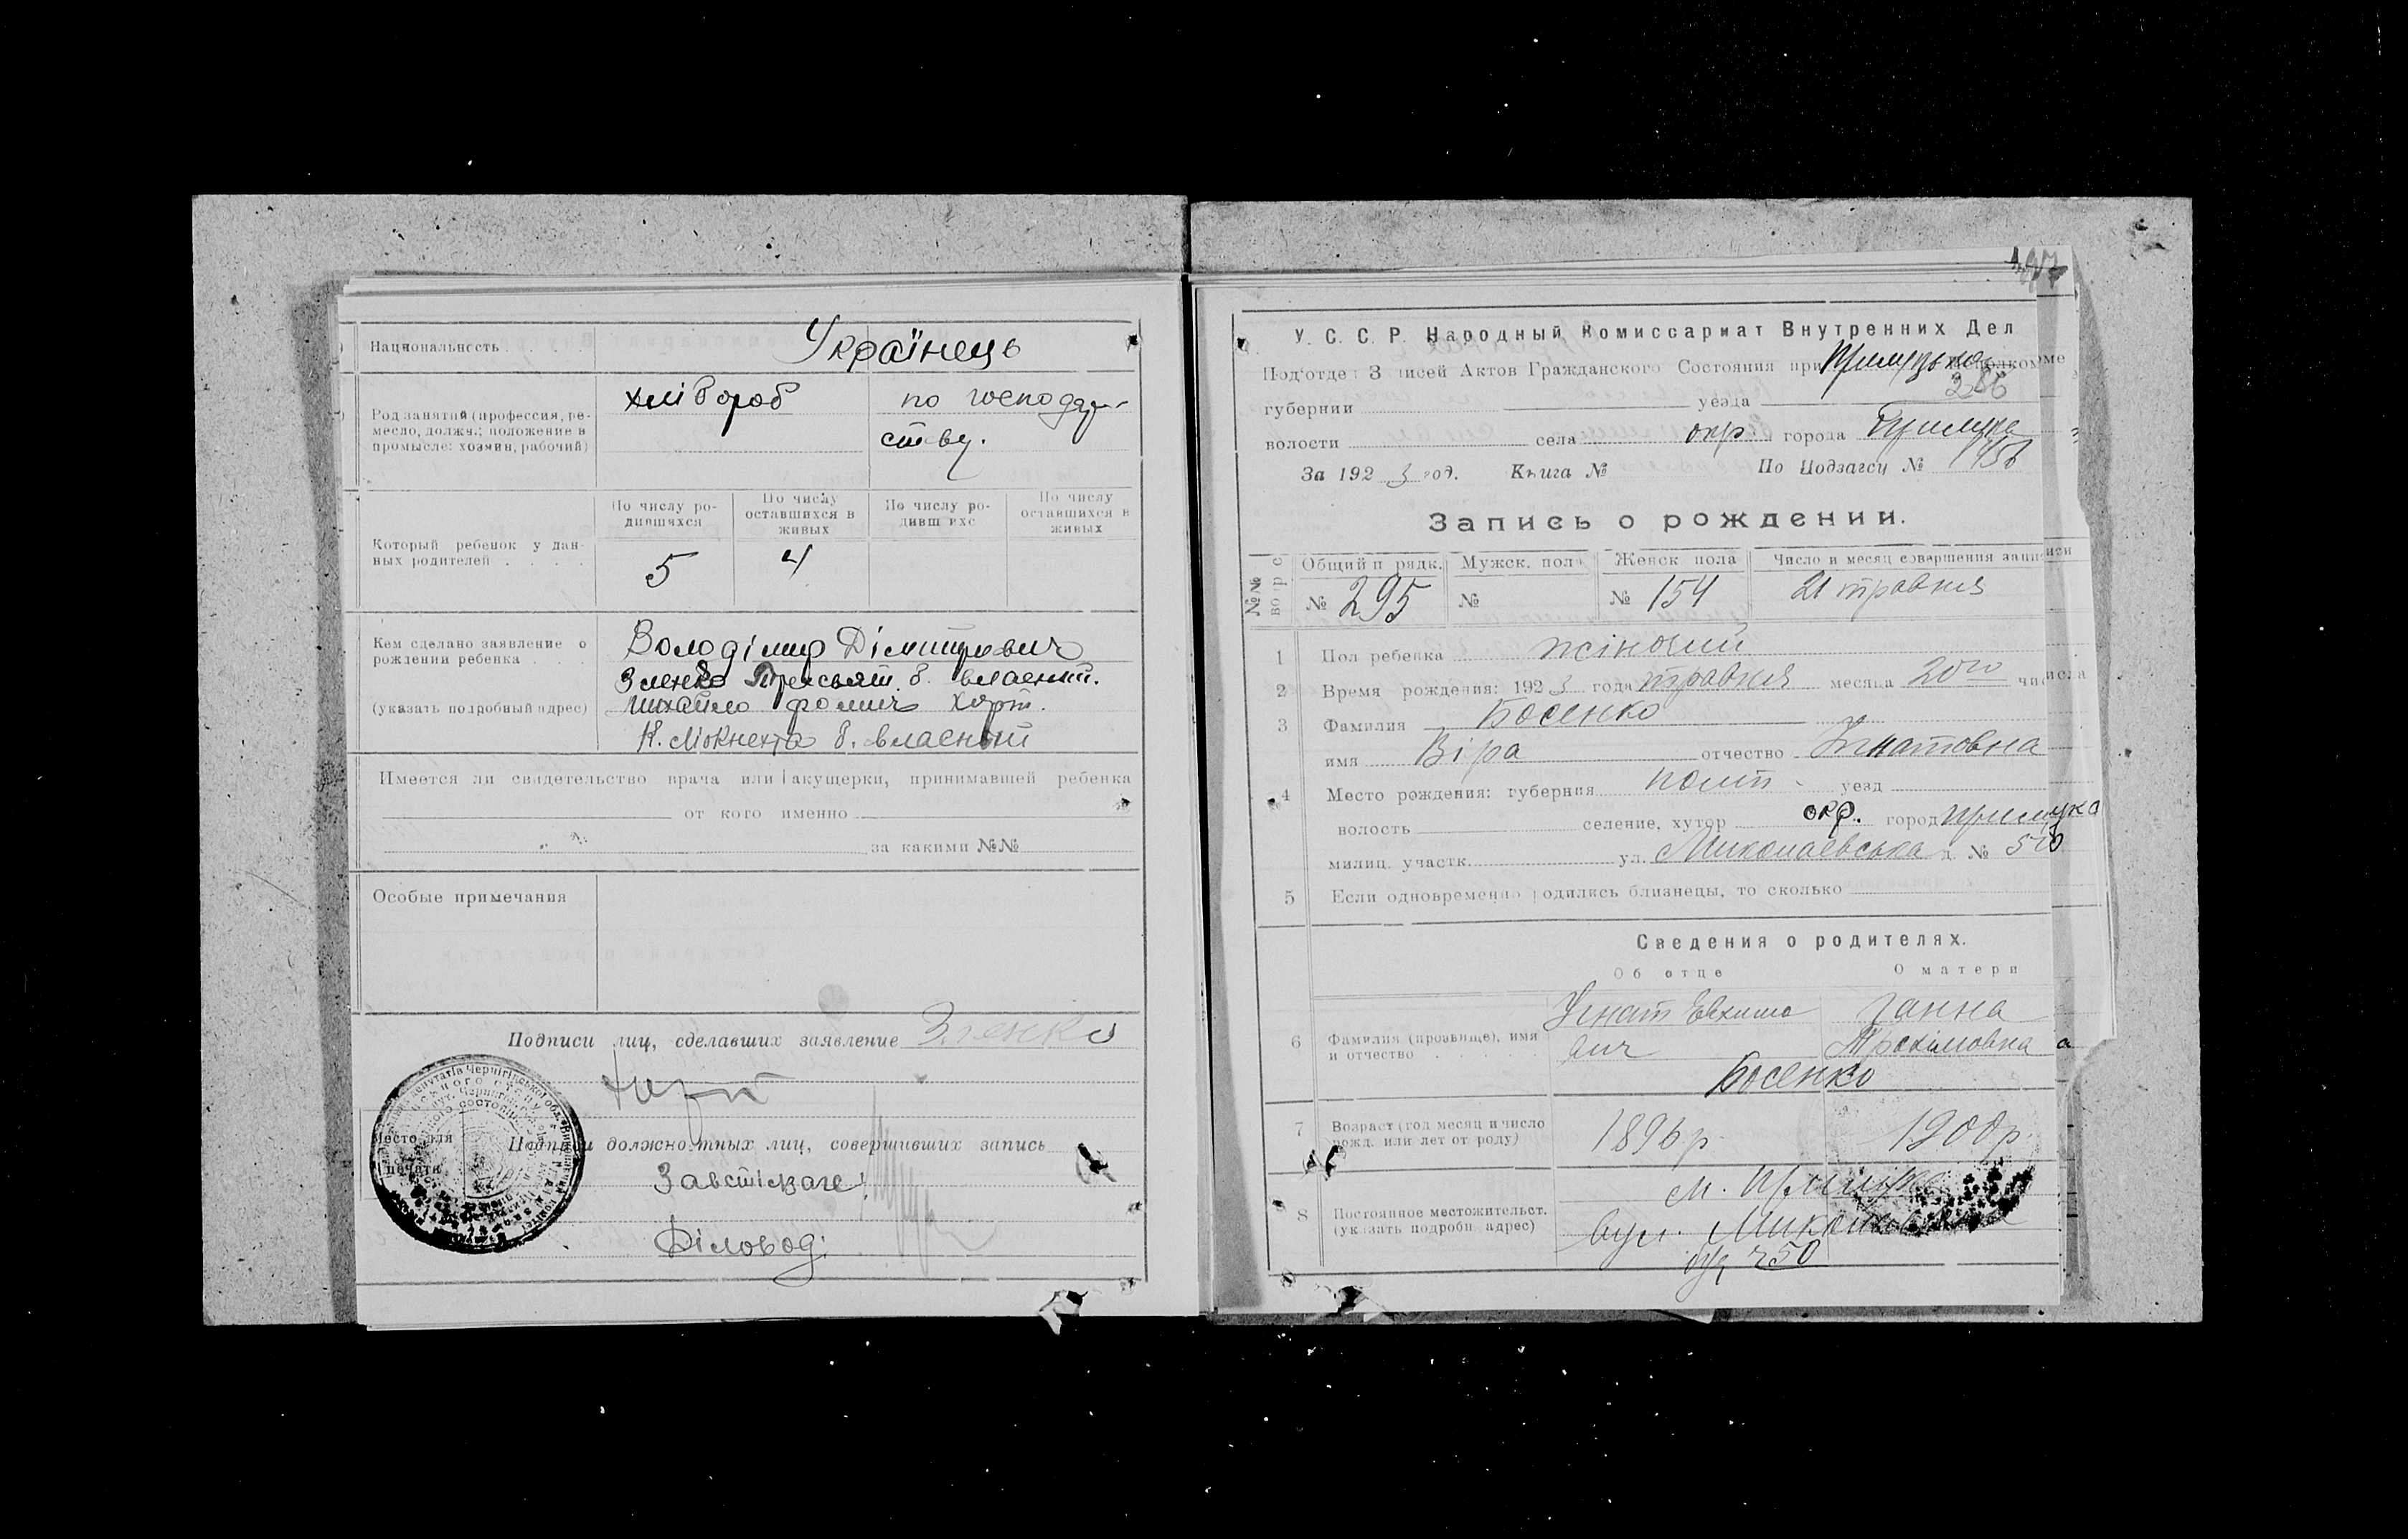 Национальность
Українець
Род занятий (профессия, ре-
месло, должн.; положение в
промысле: хозяин, рабочий)
хлібороб
по господар-
ству.
Который ребенок у дан-
ных родителей . . . .
По числу ро-
дившихся
По числу
оставшихся в
живых
По числу ро-
дивш ихс
По числу
оставшихся в
живых
5
4
Кем сделано заявление о
рождении ребенка . . .
(указать подробный адрес)
Володімир Дімитрович
Зленко Трехсвят. б. власний.
Михайло Фомич Хорт.
К. Лібкнехта б. власний
Имеется ли свидетельство врача или акушерки, принимавшей ребенка
от кого именно
за какими №№
Особые примечания
Подписи лиц, сделавших заявление Зленко
Хорт
Место для
печати
Подписи должностных лиц, совершивших запись
Завстолзагс:
Діловод:
У. С. С. Р. Народный Комиссариат Внутренних Дел
Подотдел Записей Актов Гражданского Состояния при
губернии уезда 286
волости села окр. города Прилука
За 192 3 год. Книга № По Подзагсу №
Запись о рождении.
№№
Общий п рядк. Мужск. пола Женск пола Число и месяц совершения записи
№ 295 № № 154 21 травня
1 Пол ребенка жіночий
2 Время рождения: 192 3 года травня месяца 20го числа
3 Фамилия Босенко
имя Віра отчество Ігнатовна
4 Место рождения: губерния полт. уезд
волость селение, хутор окр. город Прилука
милиц. участк. ул. Миколаевська д. № 50
5 Если одновременно родились близнецы, то сколько
Сведения о родителях.
Об отце О матери
6 Фамилия (прозвище), имя
и отчество
Ігнат Евхимо
вич
Ганна
Трохімовна
Босенко
7 Возраст (год месяц и число
рожд. или лет от роду)
1896 р.
1900 р.
8 Постоянное местожительст.
(указать подробн. адрес)
м. Прилука
вул. Миколаевська